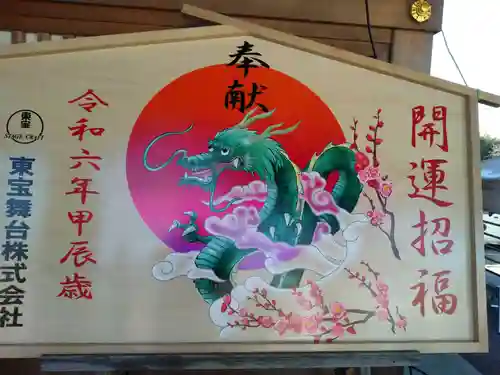 奉献
開運招福
令和六年甲辰歳
東宝
STAGE CRAFT
東宝舞台株式会社